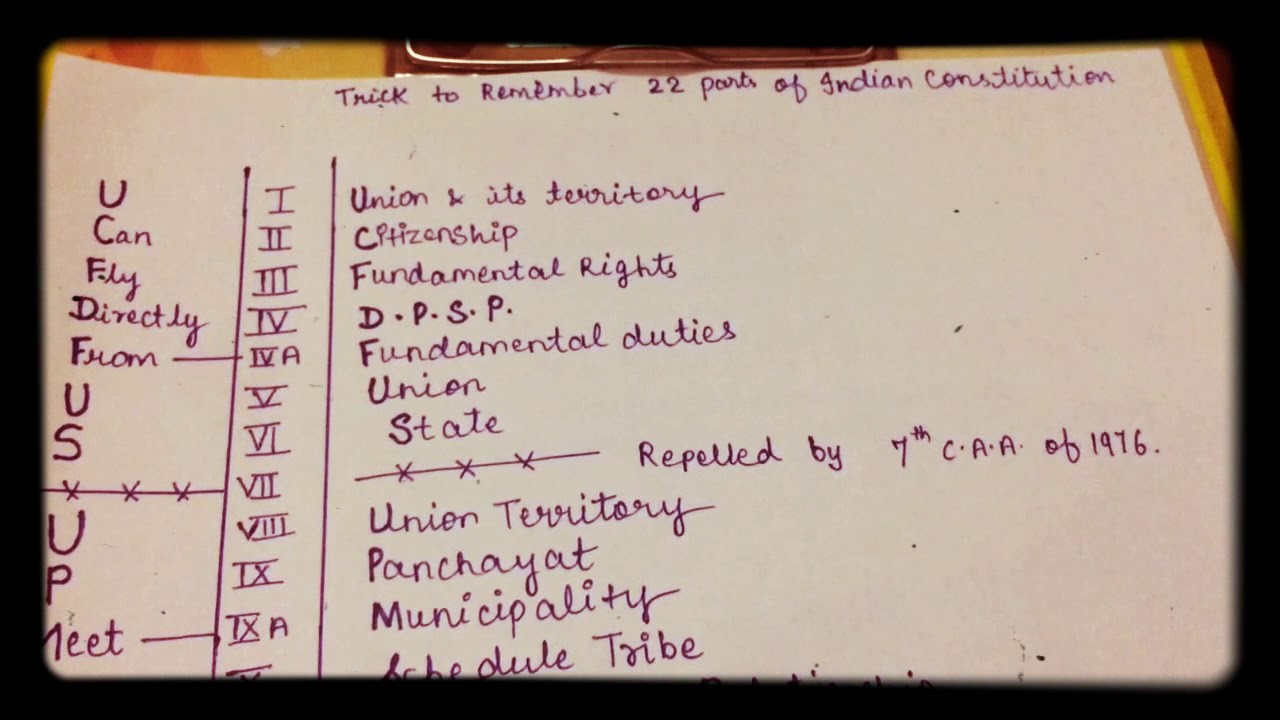 Trick to Remember 22 parts of Indian Constitution
U I Union & its territory
Can II Citizenship
Fly III Fundamental Rights
Directly IV D.P.S.P.
From IV A Fundamental duties
U V Union
S VI State
VII Repelled by 7th C.A.A. of 1976.
U VIII Union Territory
P IX Panchayat
Meet IX A Municipality
Schedule Tribe